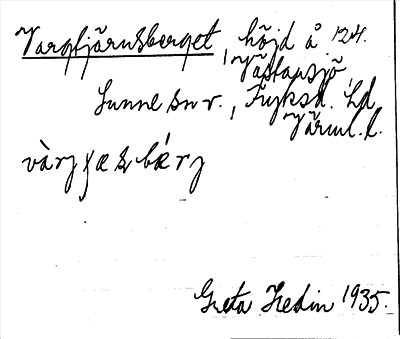 Vargfjärnsberget, höjd å 124.
Västansjö
Sunne sn v., Fryksd. hd
Värml. l.
Greta Hedin 1935.